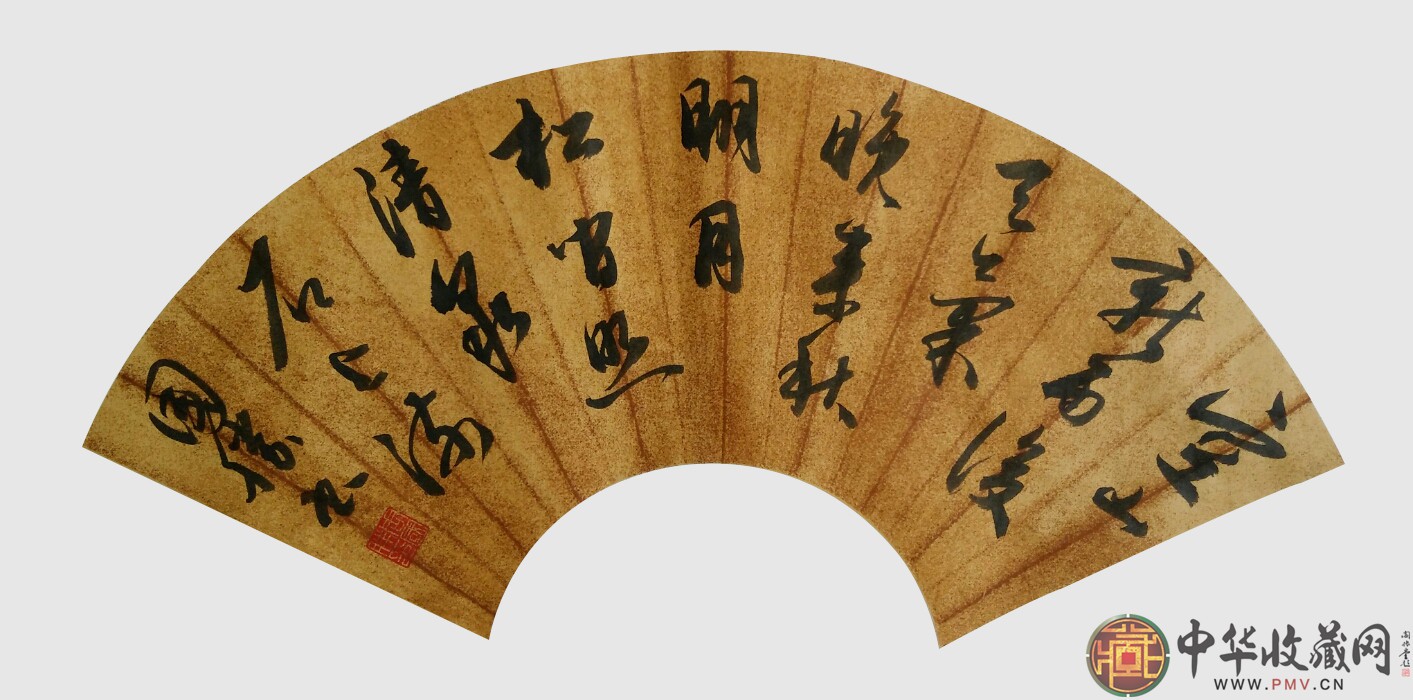 空山
新雨後
天氣
晚來秋
明月
松間照
清泉
石上流
國 书
藏
中华收藏网
WWW.PMV.CN